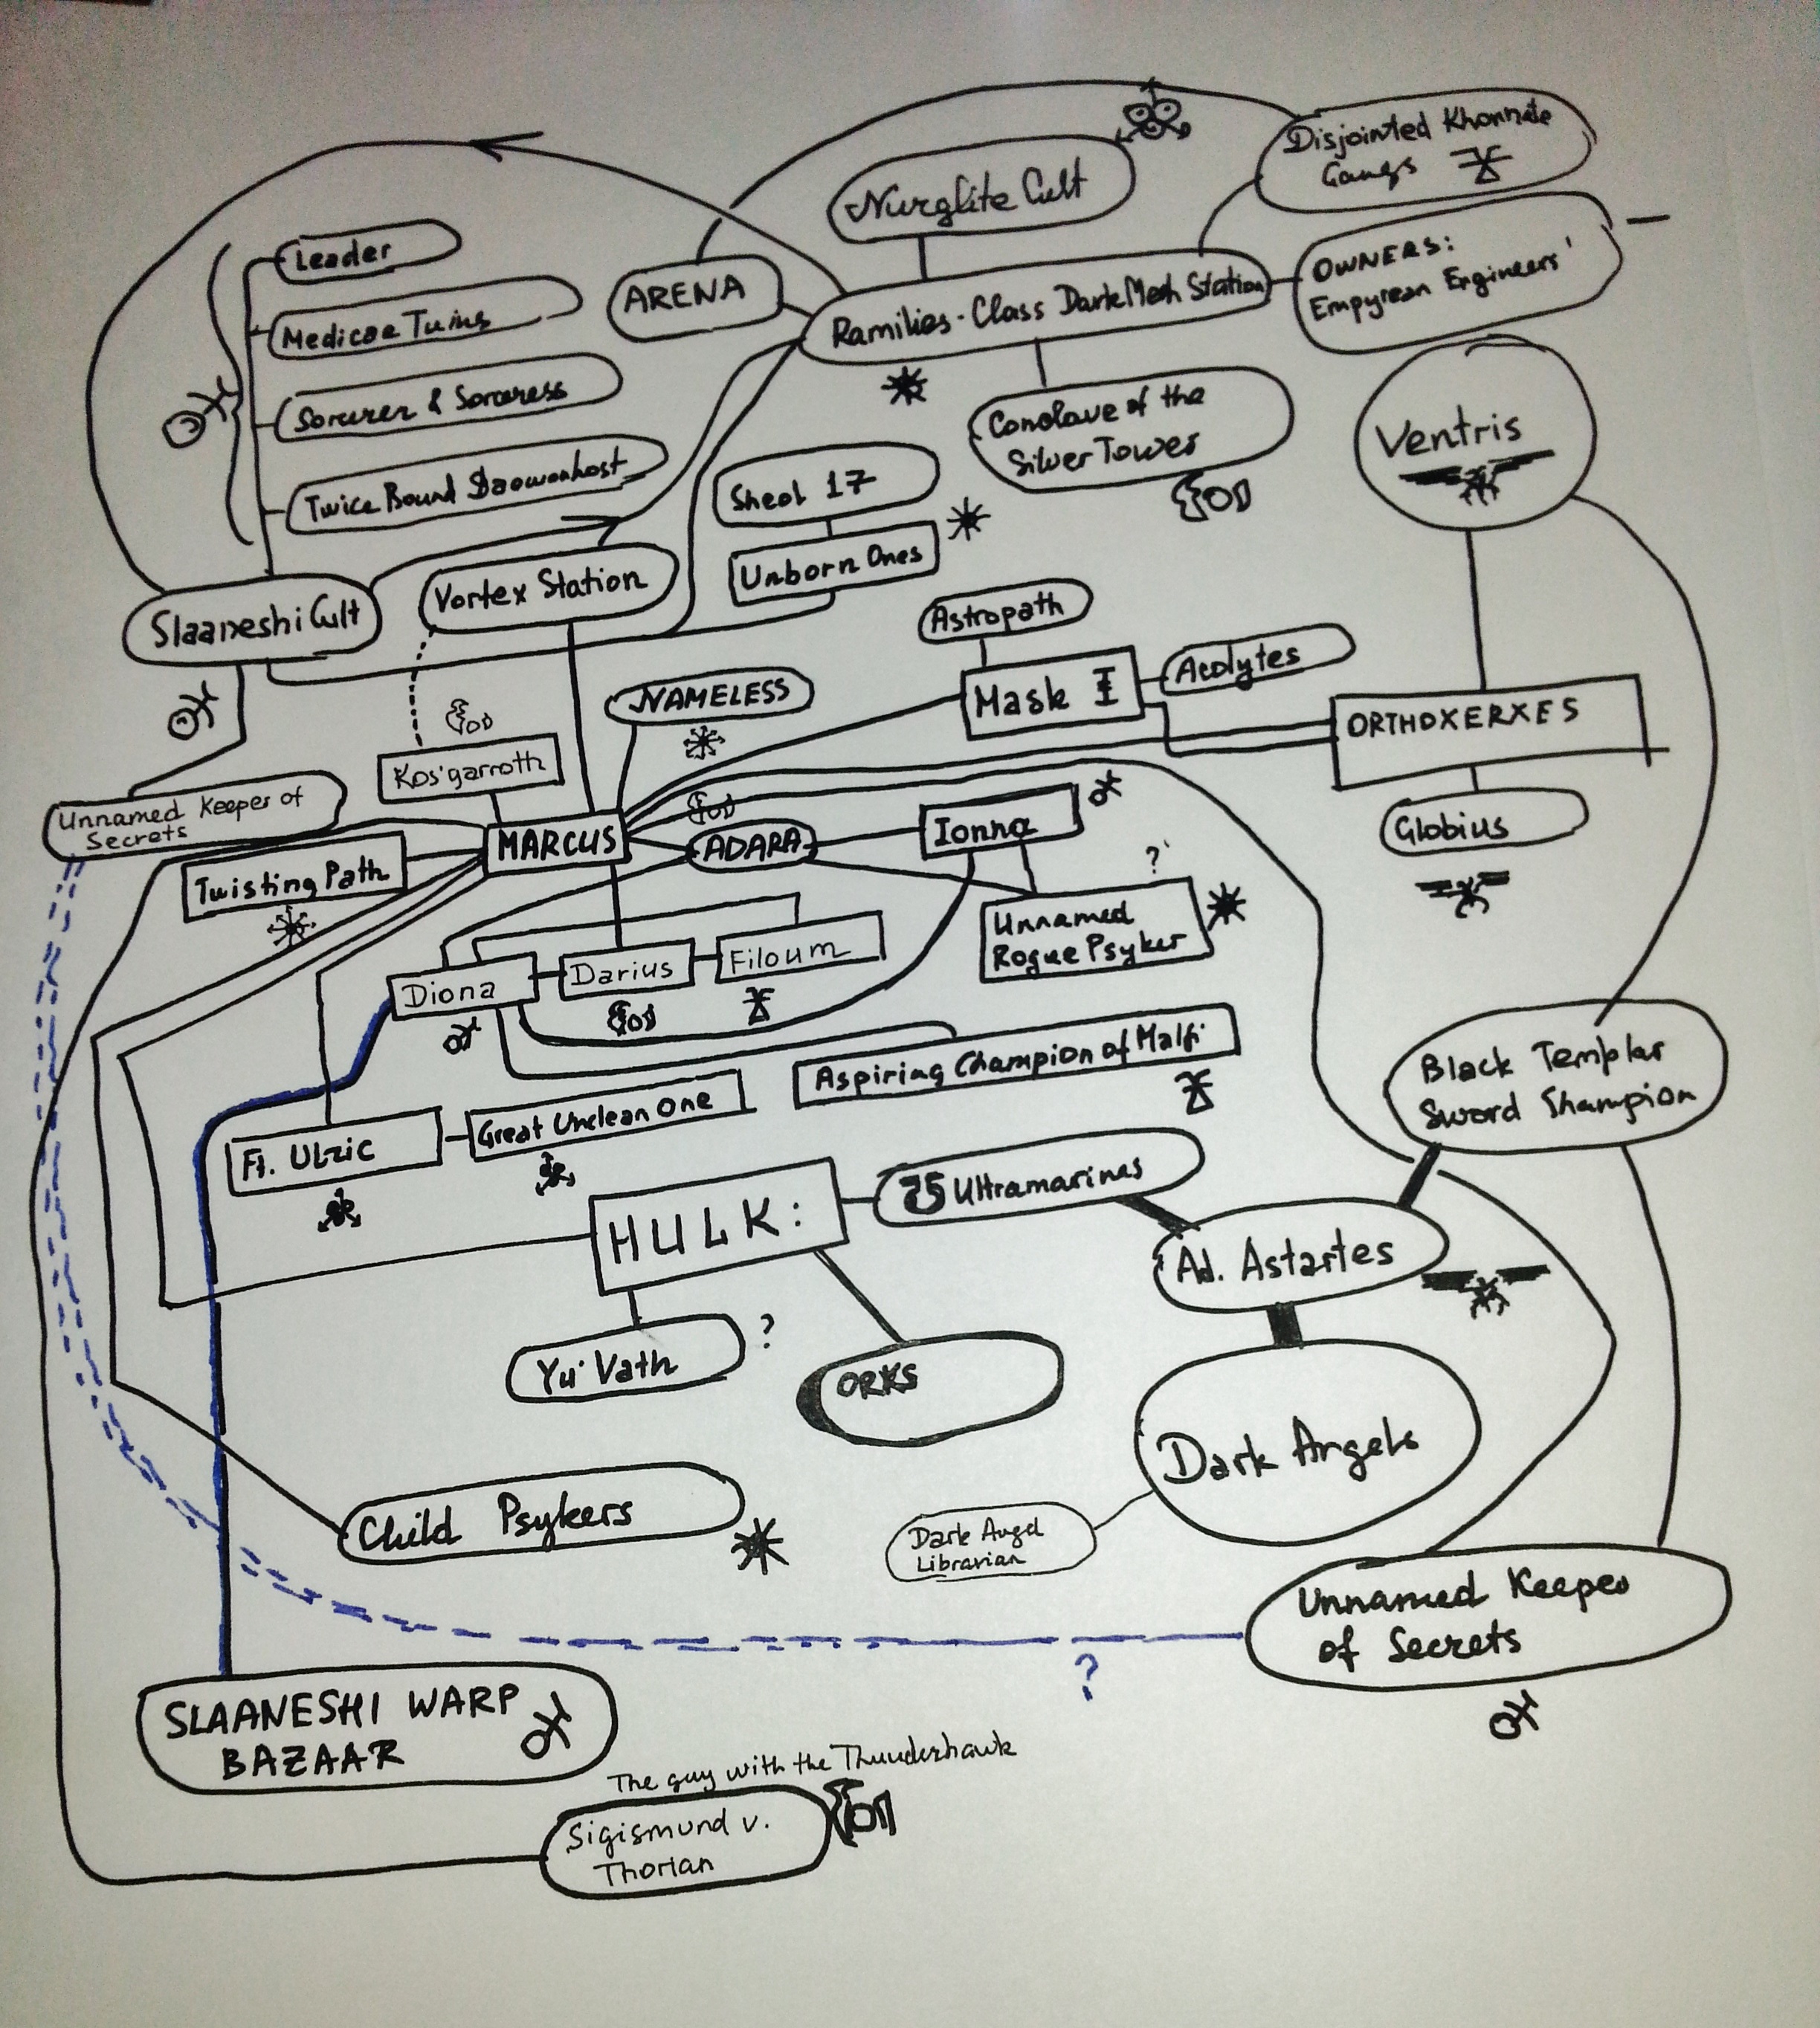 Disjointed Khornate
Gangs
Nurglite Cult
Leader
OWNERS:
Empyrean Engineers'
ARENA
Ramilies-Class DarkMech Station
Medicae Twins
Sorcerer & Sorceress
Conclave of the
Silver Tower
Ventris
Twice Bound Daemonhost
Sheol 17
Unborn Ones
Vortex Station
Slaaneshi Cult
Astropath
Acolytes
Mask I
NAMELESS
ORTHOXERXES
Kos'garroth
Unnamed Keeper of
Secrets
Globius
MARCUS
ADARA
Ionna
Twisting Path
?
Unnamed
Rogue Psyker
Diona
Darius
Filoum
Black Templar
Sword Shampion
Aspiring Champion of Malfi
Great Unclean One
Ft. Ulric
75 Ultramarines
HULK:
Ad. Astartes
Yu'Vath
?
ORKS
Dark Angels
Child Psykers
Dark Angel
Librarian
Unnamed Keeper
of Secrets
?
SLAANESHI WARP
BAZAAR
The guy with the Thunderhawk
Sigismund v.
Thorian